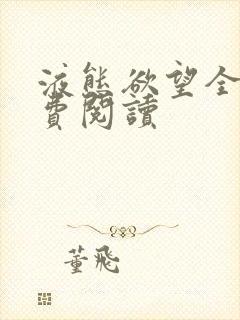 液態欲望全
費閱讀
董飛